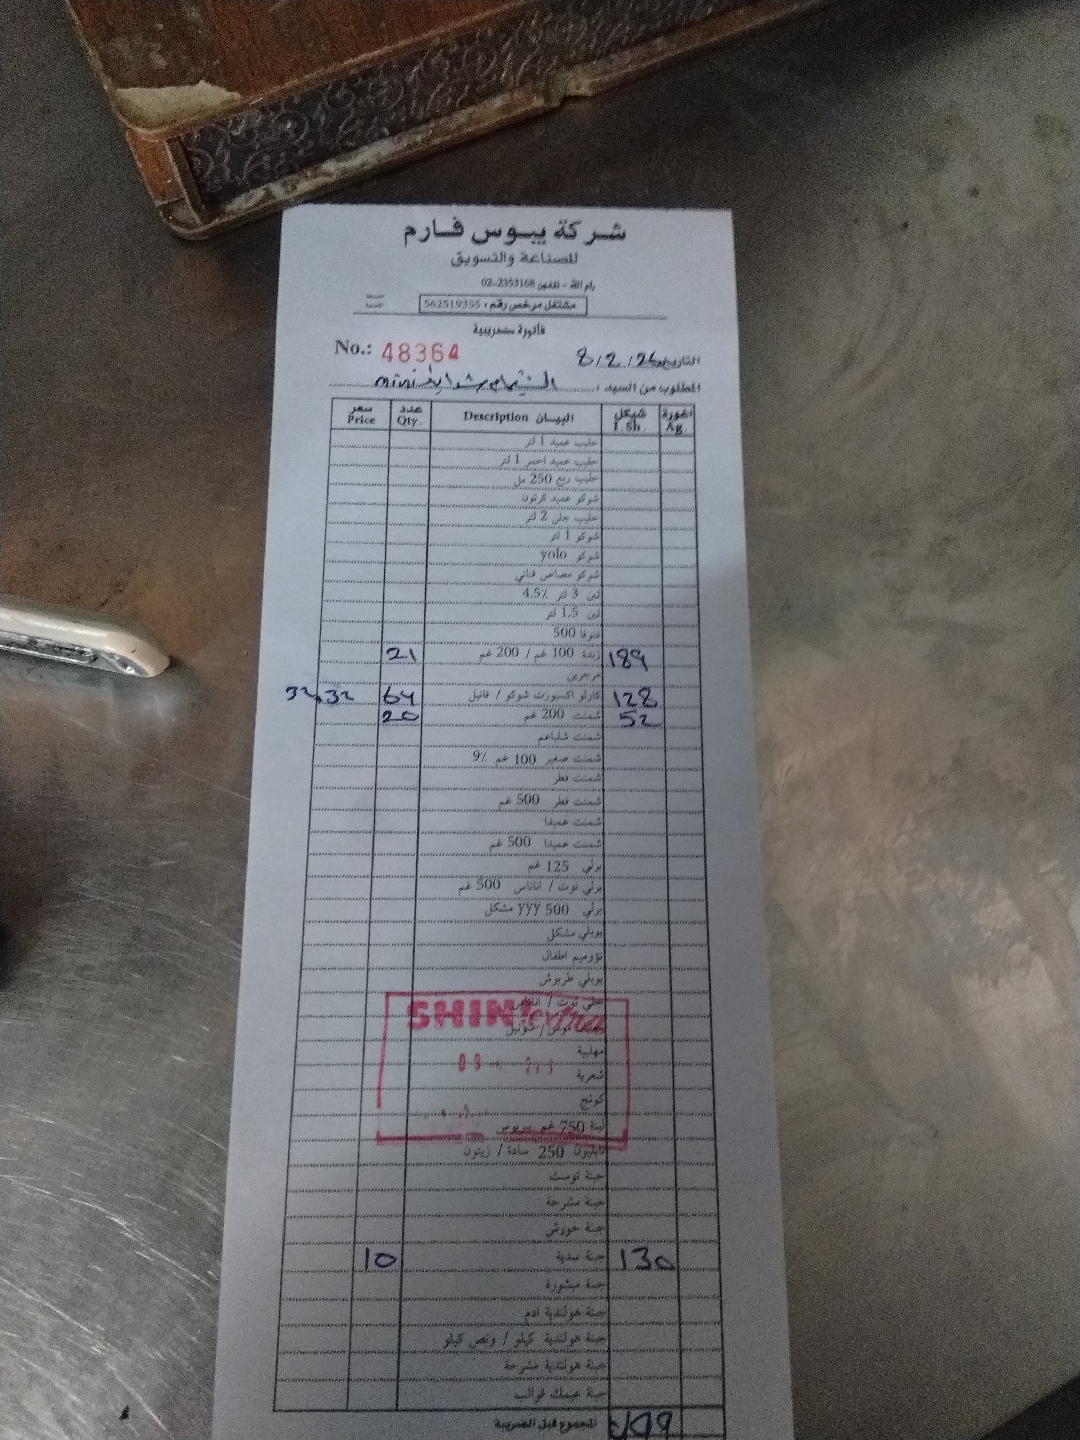 شركة يبوس فارم
للصناعة والتسويق
رام الله - تلفون 2353168-02
مشتغل مرخص رقم: 562519355
فاتورة ضريبية
No.: 48364
التاريخ 8/2/26
المطلوب من السيد: mini
سعر Price عدد Qty. البيـــان Description شيكل I.Sh. اغورة Ag.
حليب عميد 1 لتر
حليب عميد احمر 1 لتر
حليب ربع 250 مل
شوكو عميد كرتون
حليب جلي 2 لتر
شوكو 1 لتر
شوكو yolo
شوكو مصاص
لبن 3 لتر 4.5%
لبن 1.5 لتر
500
21 زبدة 100 غم / 200 غم 189
مرجرين
32 32 64 كارلو اكسبورت شوكو / فانيل 128
20 شمنت 200 غم 52
شمنت شلباعم
شمنت صغير 100 غم 9%
شمنت فطر
شمنت فطر 500 غم
شمنت عميدا
شمنت عميدا 500 غم
برلي 125 غم
برلي توت / اناناس 500 غم
برلي 500 yyy مشكل
يوبلي مشكل
اطفال
يوبلي طربوش
جلي توت / اناناس
SHINI extra
مهلبية
شعرية
كوتج
لبنة 750 غم يبوس
نابليون 250 سادة / زيتون
جبنة توست
جبنة مشرحة
جبنة
10 جبنة 130
جبنة مبشورة
جبنة هولندية ادم
جبنة هولندية كيلو / ونص كيلو
جبنة هولندية مشرحة
جبنة عيمك قوالب
المجموع قبل الضريبة